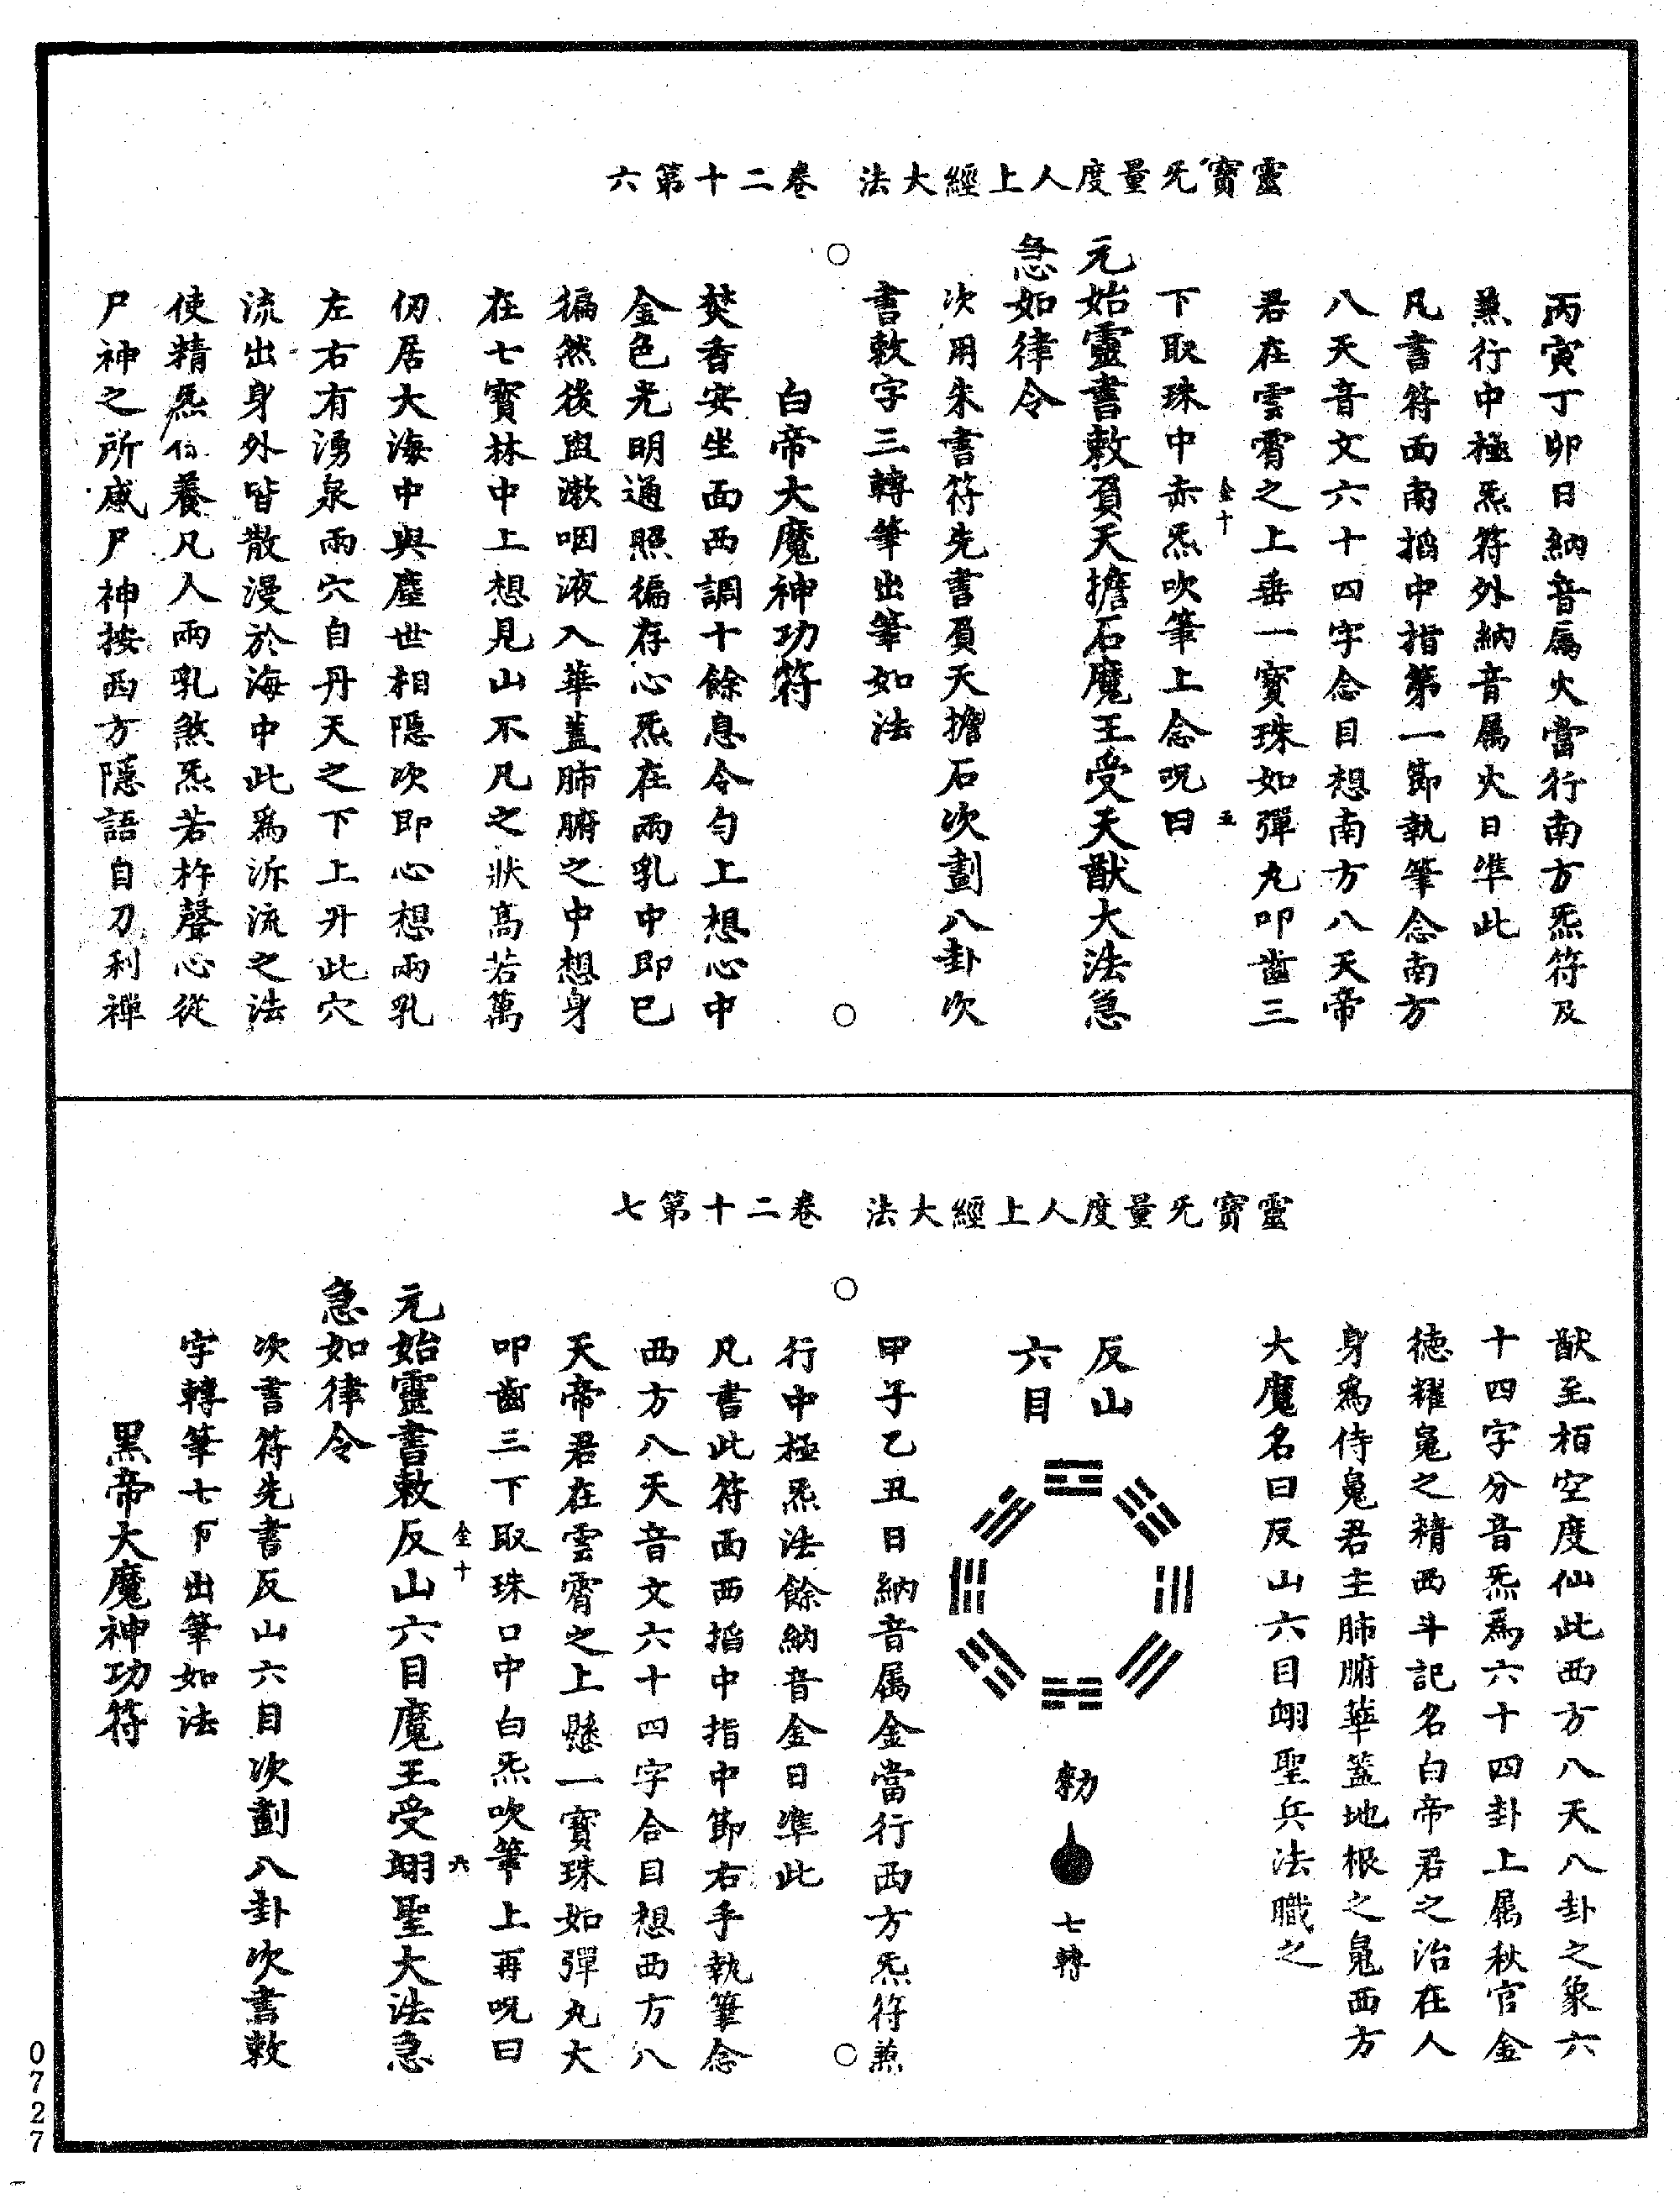 靈寶旡量度人上經大法　卷二十第六
丙寅丁卯日納音屬火當行南方炁符及
兼行中極炁符外納音属火日準此
凡書符面南掐中指第一節執筆念南方
八天音文六十四字念目想南方八天帝
君在雲霄之上垂一寳珠如彈丸叩齒三
全十　五
下取珠中赤炁吹筆上念呪曰
元始靈書敕負天擔石魔王受天猷大法急
急如律令
次用朱書符先書負天擔石次劃八卦次
書敕字三轉筆出筆如法
白帝大魔神功符
焚香安坐面西調十餘息令勻上想心中
金色光明通照徧存心炁在兩乳中即巳
徧然後盥漱咽液入華蓋肺腑之中想身
在七寳林中上想見山不凡之狀高若萬
仞居大海中與塵世相隱次即心想兩乳
左右有湧泉兩穴自丹天之下上升此穴
流出身外皆散漫於海中此爲泝流之法
使精炁養凡人兩乳煞炁若杵聲心從
尸神之所感尸神按西方隱語自刀利禪
靈寶旡量度人上經大法　卷二十第七
猷至栢空度仙此西方八天八卦之象六
十四字分音炁爲六十四卦上属秋官金
德耀䰟之精西斗記名白帝君之治在人
身爲侍䰟君主肺腑華蓋地根之䰟西方
大魔名曰反山六目翊聖兵法職之
反山
六目
勑
七轉
甲子乙丑日納音属金當行西方炁符兼
行中極炁法餘納音金日準此
凡書此符面西掐中指中節右手執筆念
西方八天音文六十四字合目想西方八
天帝君在雲霄之上懸一寳珠如彈丸大
叩齒三下取珠口中白炁吹筆上再呪曰
全十　六
元始靈書敕反山六目魔王受翊聖大法急
急如律令
次書符先書反山六目次劃八卦次書敕
字轉筆七下出筆如法
黑帝大魔神功符
0727